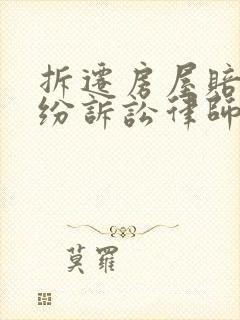 拆遷房屋賠
紛訴訟律師
莫羅